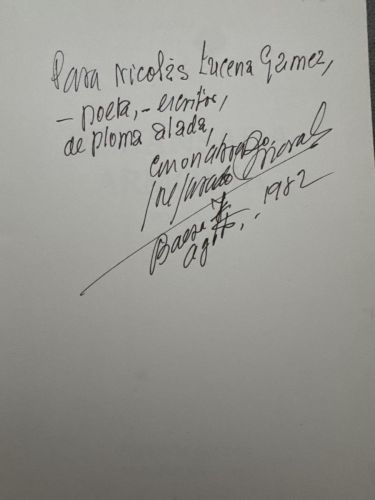 Para Nicolás Lucena Gámez,
- poeta, - escritor,
de ploma alada,
con un abrazo
Baeza
agto, .. 1982